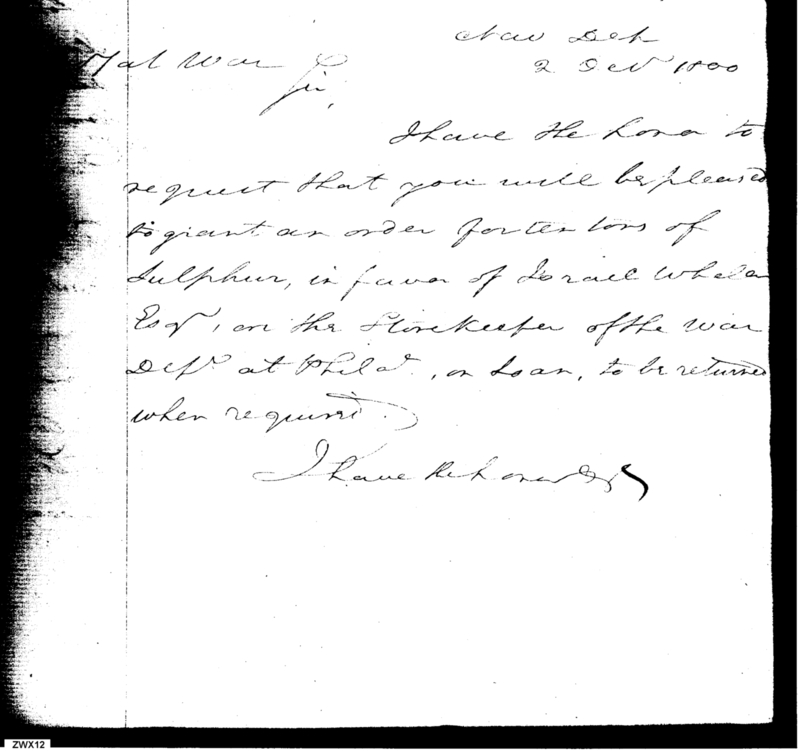 Nav Dept
2 Decr 1800
War
Sir,
I have the honor to
request that you will be pleased
to grant an order for ten tons of
Sulphur, in favor of Israel Whelan
Esqr, on the Storekeeper of the War
Depr at Philaa, on Loan, to be returned
when required.
I have the honor &c
ZWX12